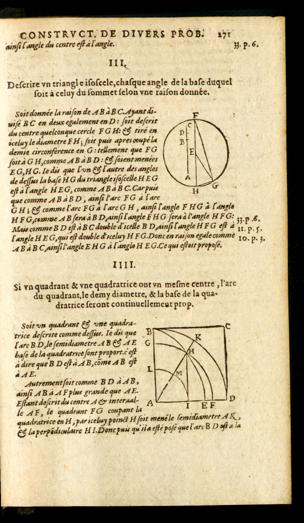 CONSTRVCT. DE DIVERS PROB. 271
ainsi l'angle du centre est à l'angle. 33. p. 6.
III.
Descrire vn triangle isoscele, chasque angle de la base duquel
soit à celuy du sommet selon vne raison donnée.
Soit donnée la raison de AB à BC. Ayant di-
uisé BC en deux egalement en D: soit descrit
du centre quelconque cercle FGH: & tiré en
iceluy le diametre FH; soit puis apres coupé la
demie circonference en G: tellement que FG
soit à GH, comme AB à BD: & soient menées
EG, HG. Ie di que l'vn & l'autre des angles
de dessus la base HG du triangle isoscelle HEG
est à l'angle HEG, comme AB à BC. Car puis
que comme AB à BD, ainsi l'arc FG à l'arc
GH; & comme l'arc FG à l'arc GH, ainsi l'angle FHG à l'angle
HFG, comme AB sera à BD, ainsi l'angle FHG sera à l'angle HFG: 33. p. 6.
Mais comme BD est à BC double d'icelle BD, ainsi l'angle HFG est à 11. p. 5.
l'angle HEG, qui est double d'iceluy HFG. Donc en raison egale comme 10. p. 3.
AB à BC, ainsi l'angle EHG à l'angle HEG. Ce qui estoit proposé.
F
C
D
B
E
A
G
H
IIII.
Si vn quadrant & vne quadratrice ont vn mesme centre, l'arc
du quadrant, le demy diametre, & la base de la qua-
dratrice seront continuellement prop.
Soit vn quadrant & vne quadra-
trice descrite comme dessus. Ie dis que
l'arc BD, le semidiametre AB & AE
base de la quadratrice sont proport. c'est
à dire que BD est à AB, côme AB est
à AE.
Autrement soit comme BD à AB,
ainsi AB à AF plus grande que AE.
Estant descrit du centre A & interual-
le AF, le quadrant FG coupant la
quadratrice en H, par iceluy poinct H soit mené le semidiametre AK,
& la perpēdiculaire HI. Donc puis qu'il a esté posé que l'arc BD est à la
B
C
G
K
H
L
M
A
I
E F
D